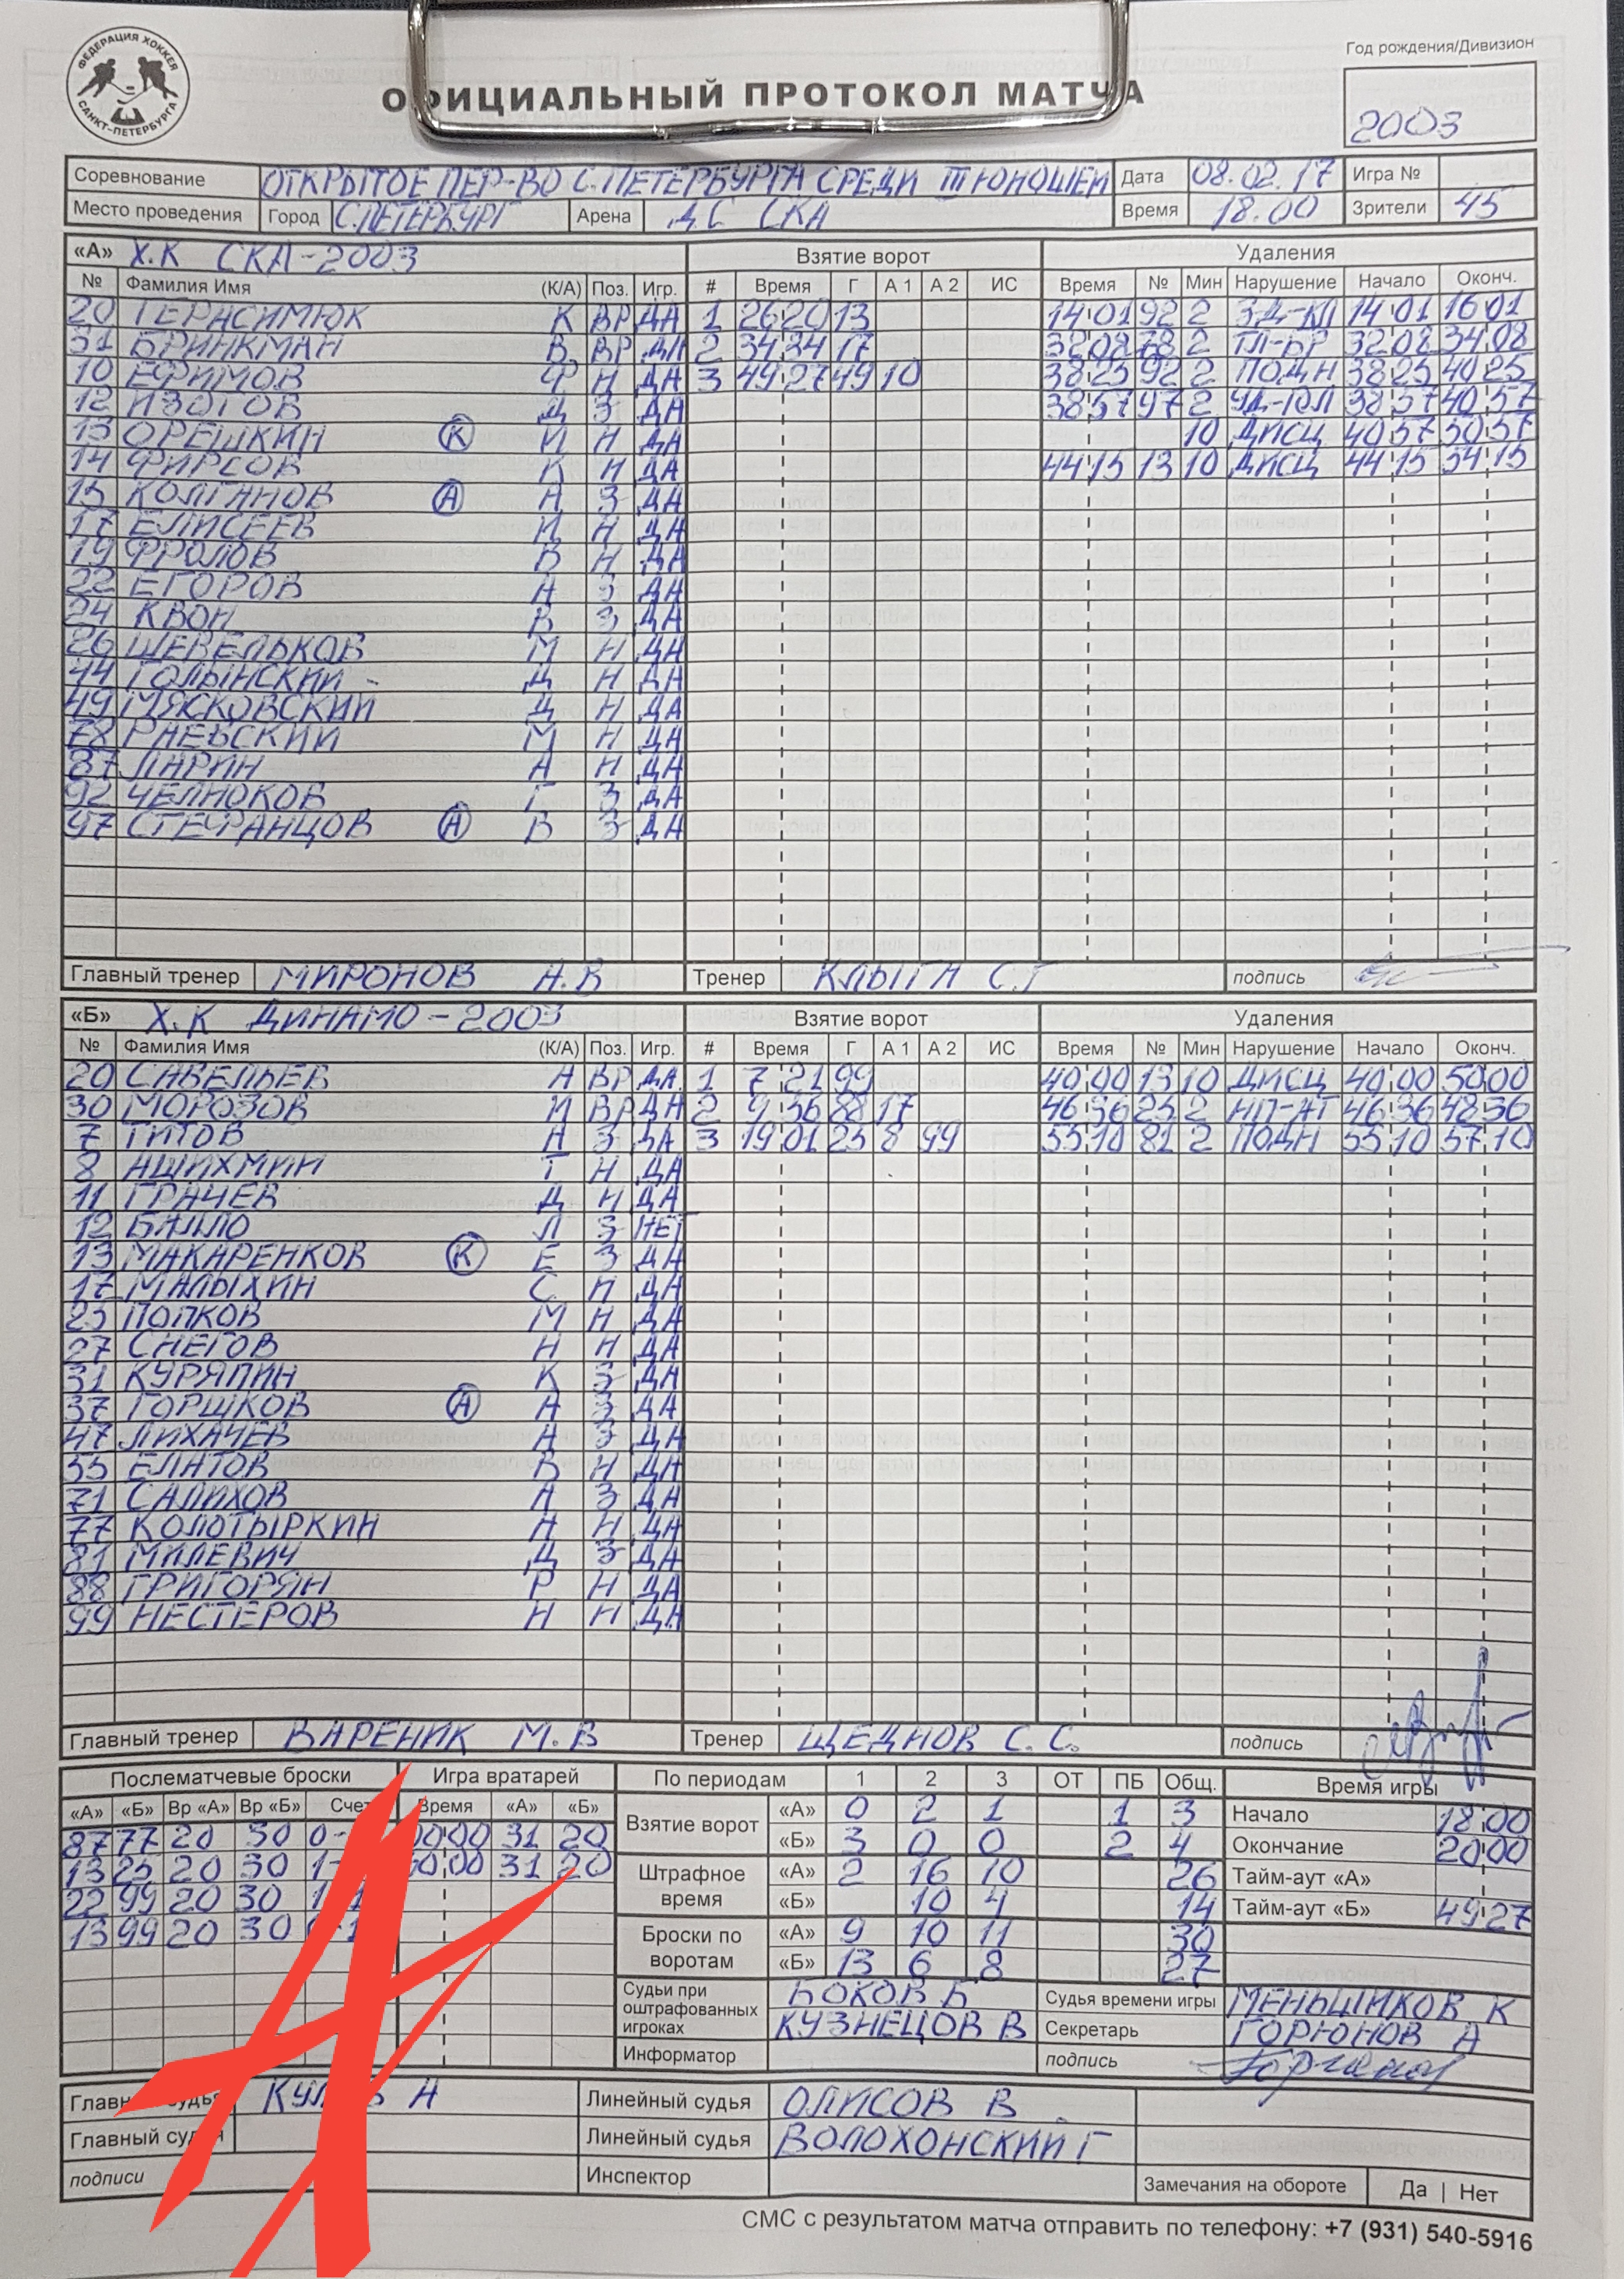 ФЕДЕРАЦИЯ ХОККЕЯ САНКТ-ПЕТЕРБУРГА
Год рождения/Дивизион
ОФИЦИАЛЬНЫЙ ПРОТОКОЛ МАТЧА
2003
Соревнование ОТКРЫТОЕ ПЕР-ВО С.ПЕТЕРБУРГА СРЕДИ ЮНОШЕЙ Дата 08.02.17 Игра №
Место проведения Город С.ПЕТЕРБУРГ Арена ДС СКА Время 18.00 Зрители 45
«А» Х.К СКА-2003 Взятие ворот Удаления
№ Фамилия Имя (К/А) Поз. Игр. # Время Г А 1 А 2 ИС Время № Мин Нарушение Начало Оконч.
20 ГЕРАСИМЮК К ВР ДА 1 26 20 13 14 01 92 2 ЗД-КЛ 14 01 16 01
31 БРИНКМАН В. ВР ДА 2 34 34 17 32 08 78 2 32 08 34 08
10 ЕФИМОВ Ф Н ДА 3 49 27 49 10 38 25 92 2 ПОДН 38 25 40 25
12 ИЗОТОВ Д З ДА 38 57 97 2 УД-КЛ 38 57 40 57
13 ОРЕШКИН К И Н ДА 10 ДИСЦ 40 57 50 57
14 ФИРСОВ К Н ДА 44 15 13 10 ДИСЦ 44 15 54 15
15 КОЛГАНОВ А А З ДА
17 ЕЛИСЕЕВ И Н ДА
19 ФРОЛОВ В Н ДА
22 ЕГОРОВ А З ДА
24 КВОН В З ДА
26 ШЕВЕЛЬКОВ М Н ДА
44 ГОЛЫНСКИЙ Д Н ДА
49 МЯСКОВСКИЙ Д Н ДА
78 РАЕВСКИЙ М Н ДА
87 ЛАРИН А Н ДА
92 ЧЕЛНОКОВ Г З ДА
97 СТЕФАНЦОВ А В З ДА
Главный тренер МИРОНОВ А.В Тренер КЛЫГА С.Г подпись
«Б» Х.К ДИНАМО-2003 Взятие ворот Удаления
№ Фамилия Имя (К/А) Поз. Игр. # Время Г А 1 А 2 ИС Время № Мин Нарушение Начало Оконч.
20 САВЕЛЬЕВ А ВР ДА 1 7 21 99 40 00 13 10 ДИСЦ 40 00 50 00
30 МОРОЗОВ И ВР ДА 2 9 56 88 17 46 36 25 2 НП-АТ 46 36 48 36
7 ТИТОВ А З ДА 3 19 01 25 8 99 55 10 81 2 ПОДН 55 10 57 10
8 АШИХМИН Т Н ДА
11 ГРАЧЕВ Д Н ДА
12 БАЛЛО Л З НЕТ
13 МАКАРЕНКОВ К Е З ДА
17 МАЛЫХИН С Н ДА
25 ПОПКОВ М Н ДА
27 СНЕГОВ Н Н ДА
31 КУРЯПИН К З ДА
37 ГОРШКОВ А А З ДА
47 ЛИХАЧЕВ А З ДА
55 ЕЛАТОВ В Н ДА
71 САЛИХОВ А З ДА
77 КОЛОТЫРКИН А Н ДА
81 МИЛЕВИЧ Д З ДА
88 ГРИГОРЯН Р Н ДА
99 НЕСТЕРОВ Н Н ДА
Главный тренер ВАРЕНИК М.В Тренер ЩЕДНОВ С.С. подпись
Послематчевые броски Игра вратарей По периодам 1 2 3 ОТ ПБ Общ. Время игры
«А» «Б» Вр «А» Вр «Б» Счет Время «А» «Б»
87 77 20 30 31 20
13 25 20 30 31 20
22 99 20 30
13 99 20 30
Взятие ворот «А» 0 2 1 1 3 Начало 18:00
«Б» 3 0 0 2 4 Окончание 20:00
Штрафное время «А» 2 16 10 26 Тайм-аут «А»
«Б» 10 4 14 Тайм-аут «Б» 49 27
Броски по воротам «А» 9 10 11 30
«Б» 13 6 8 27
Судьи при оштрафованных игроках БОКОВ Б Судья времени игры МЕНЬШИКОВ К
КУЗНЕЦОВ В Секретарь ГОРЮНОВ А
Информатор подпись
Главный судья Линейный судья ОЛИСОВ В
Главный судья Линейный судья ВОЛОХОНСКИЙ Г
подписи Инспектор Замечания на обороте Да | Нет
СМС с результатом матча отправить по телефону: +7 (931) 540-5916